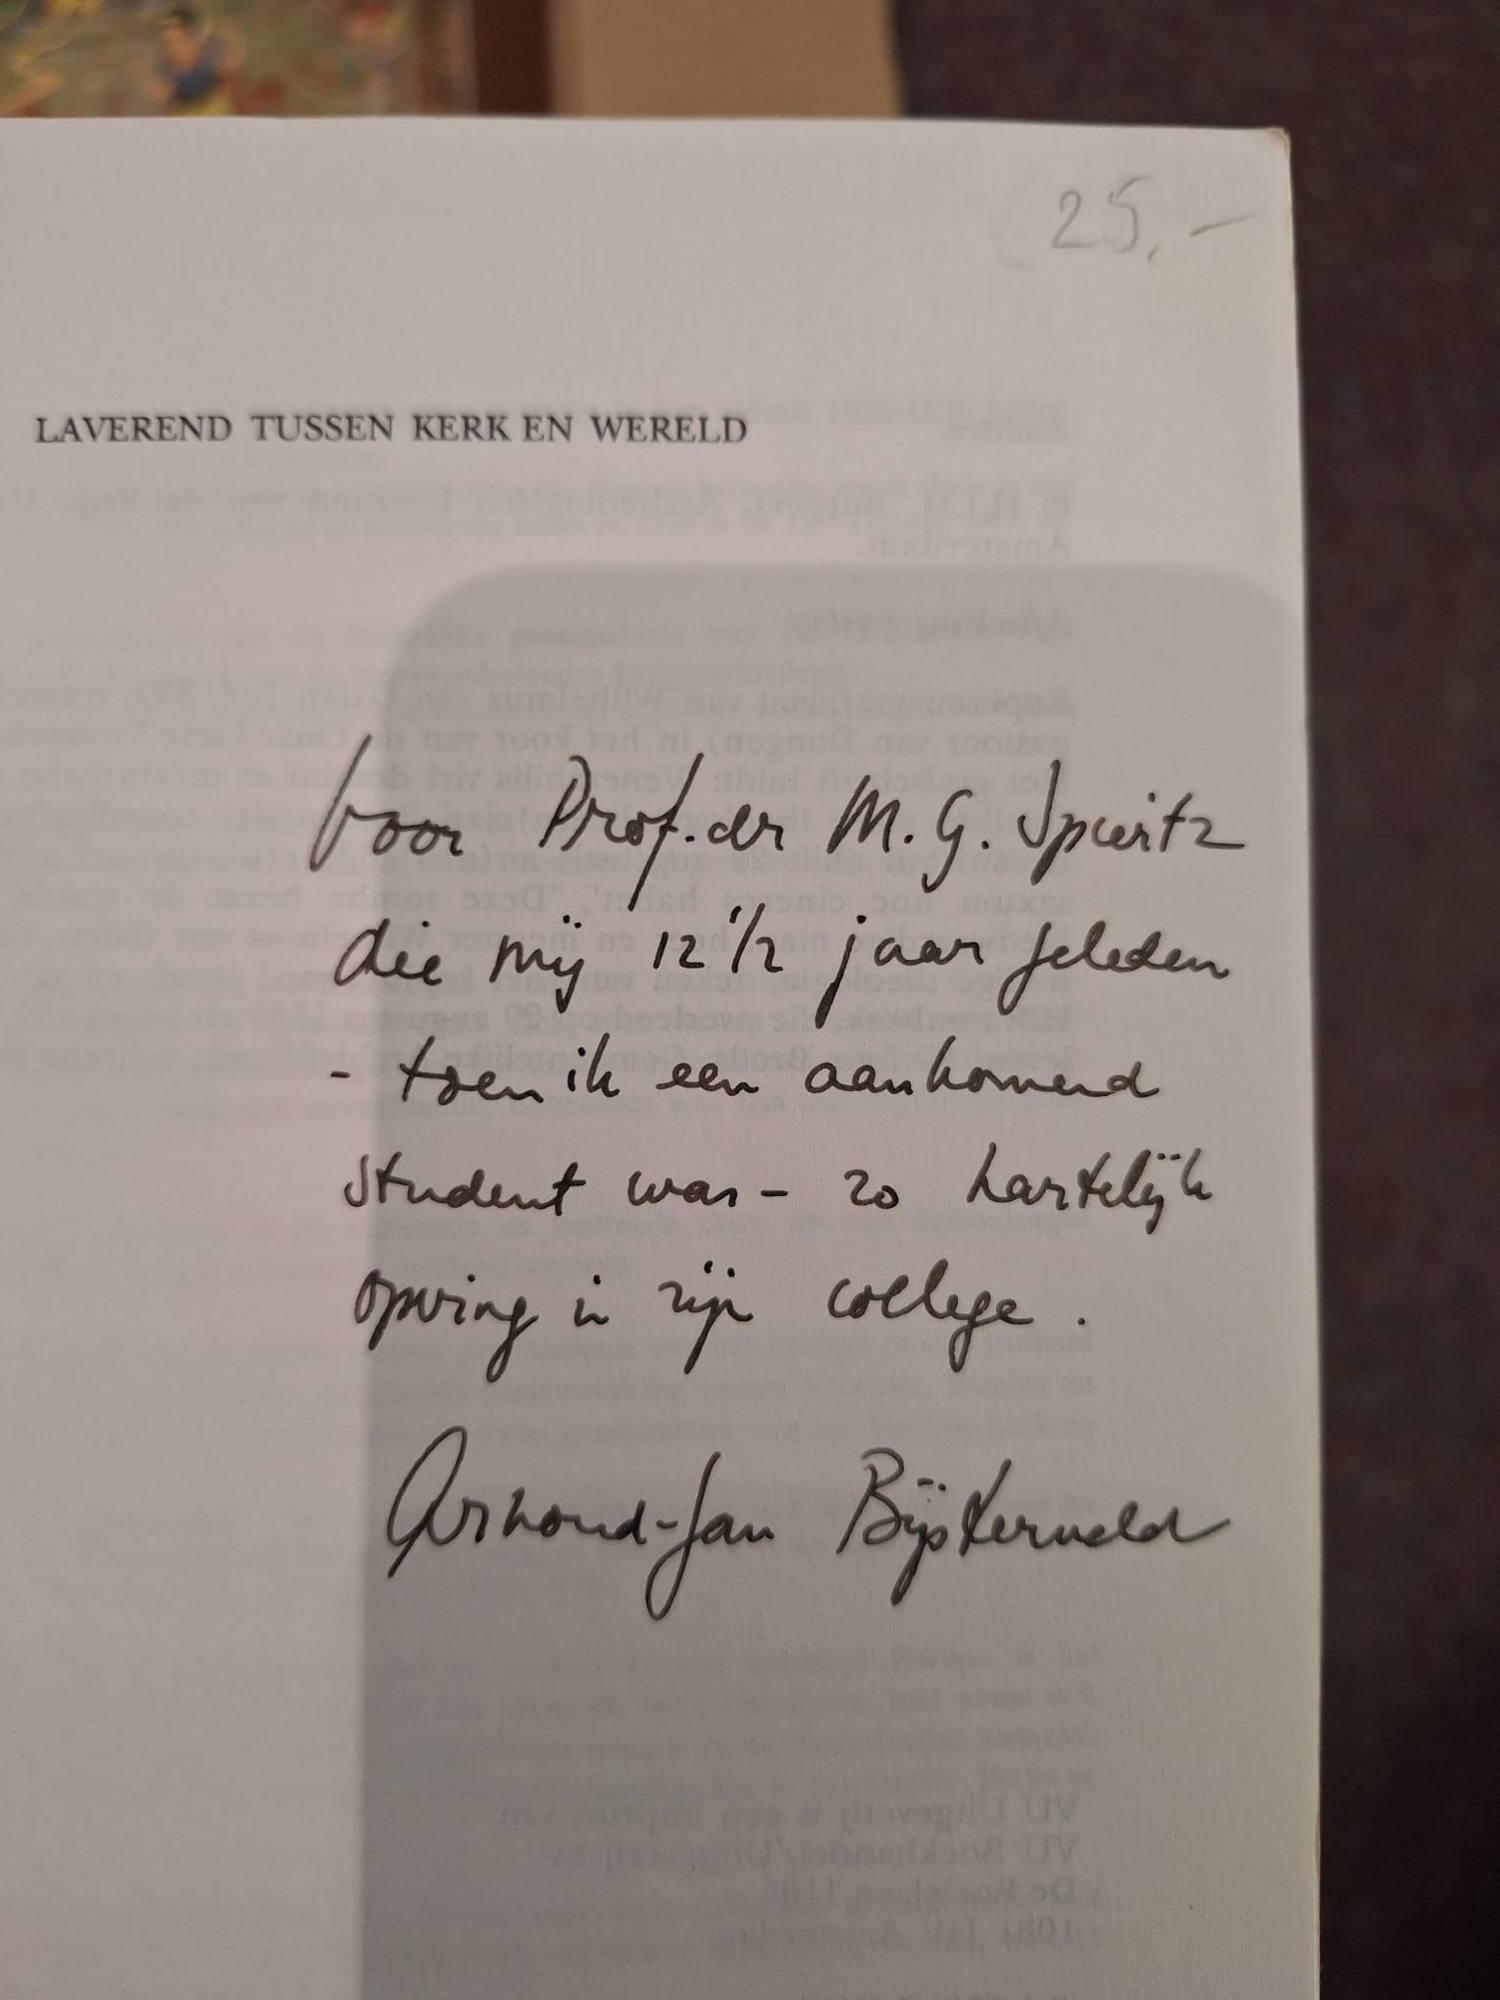 25,-
LAVEREND TUSSEN KERK EN WERELD
Voor Prof. dr M. G. Spiertz
die mij 12 1/2 jaar geleden
- toen ik een aankomend
student was - zo hartelijk
opving in zijn college.
Arnoud-Jan Bijsterveld